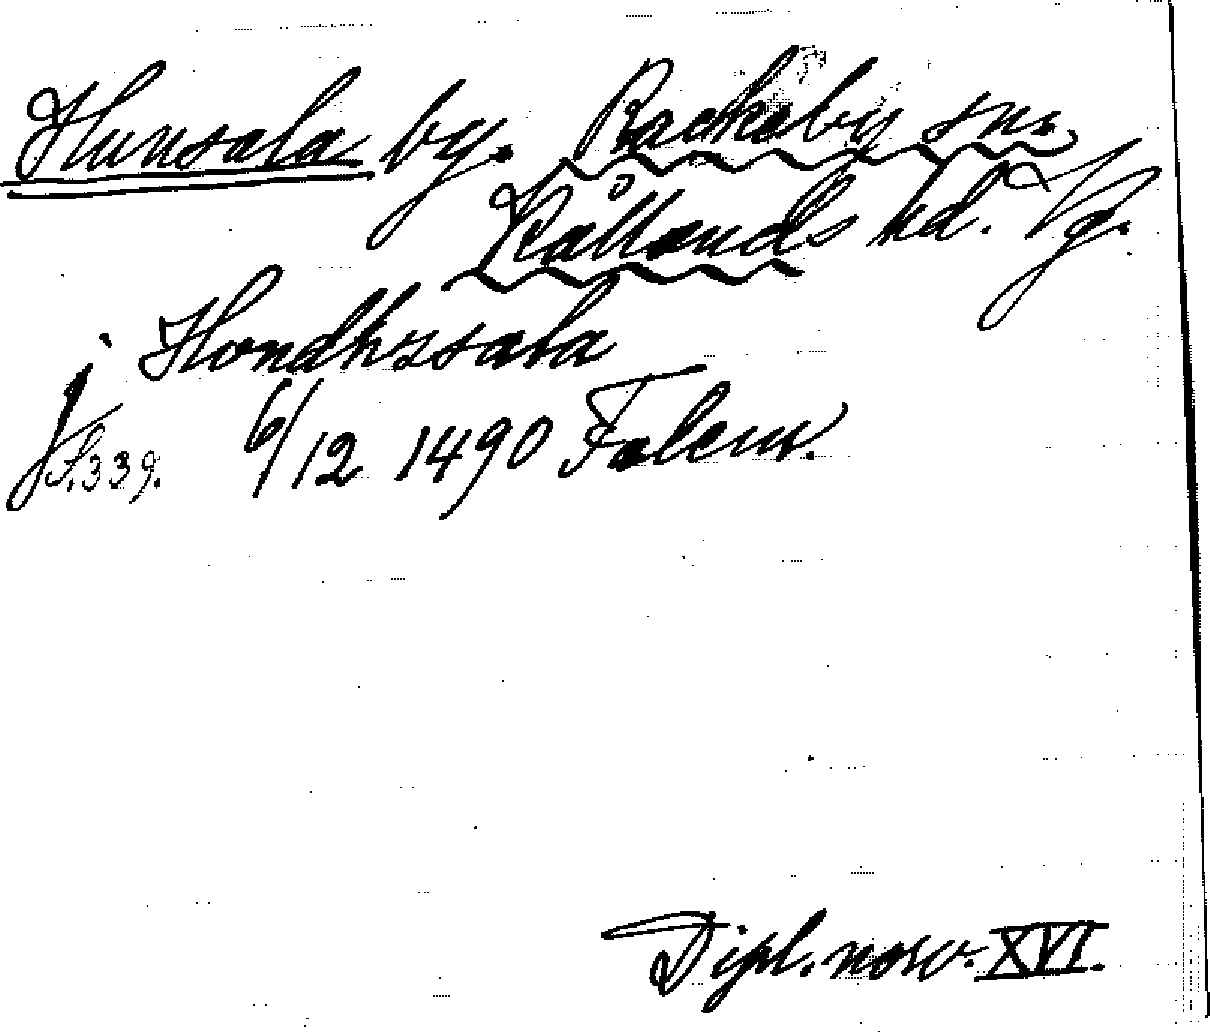 Hunsala by. Rackeby sn.
Kållands hd. Vg.
j Hondhzsala
S. 339. 6/12 1490 Falem.
Dipl. norv. XVI.